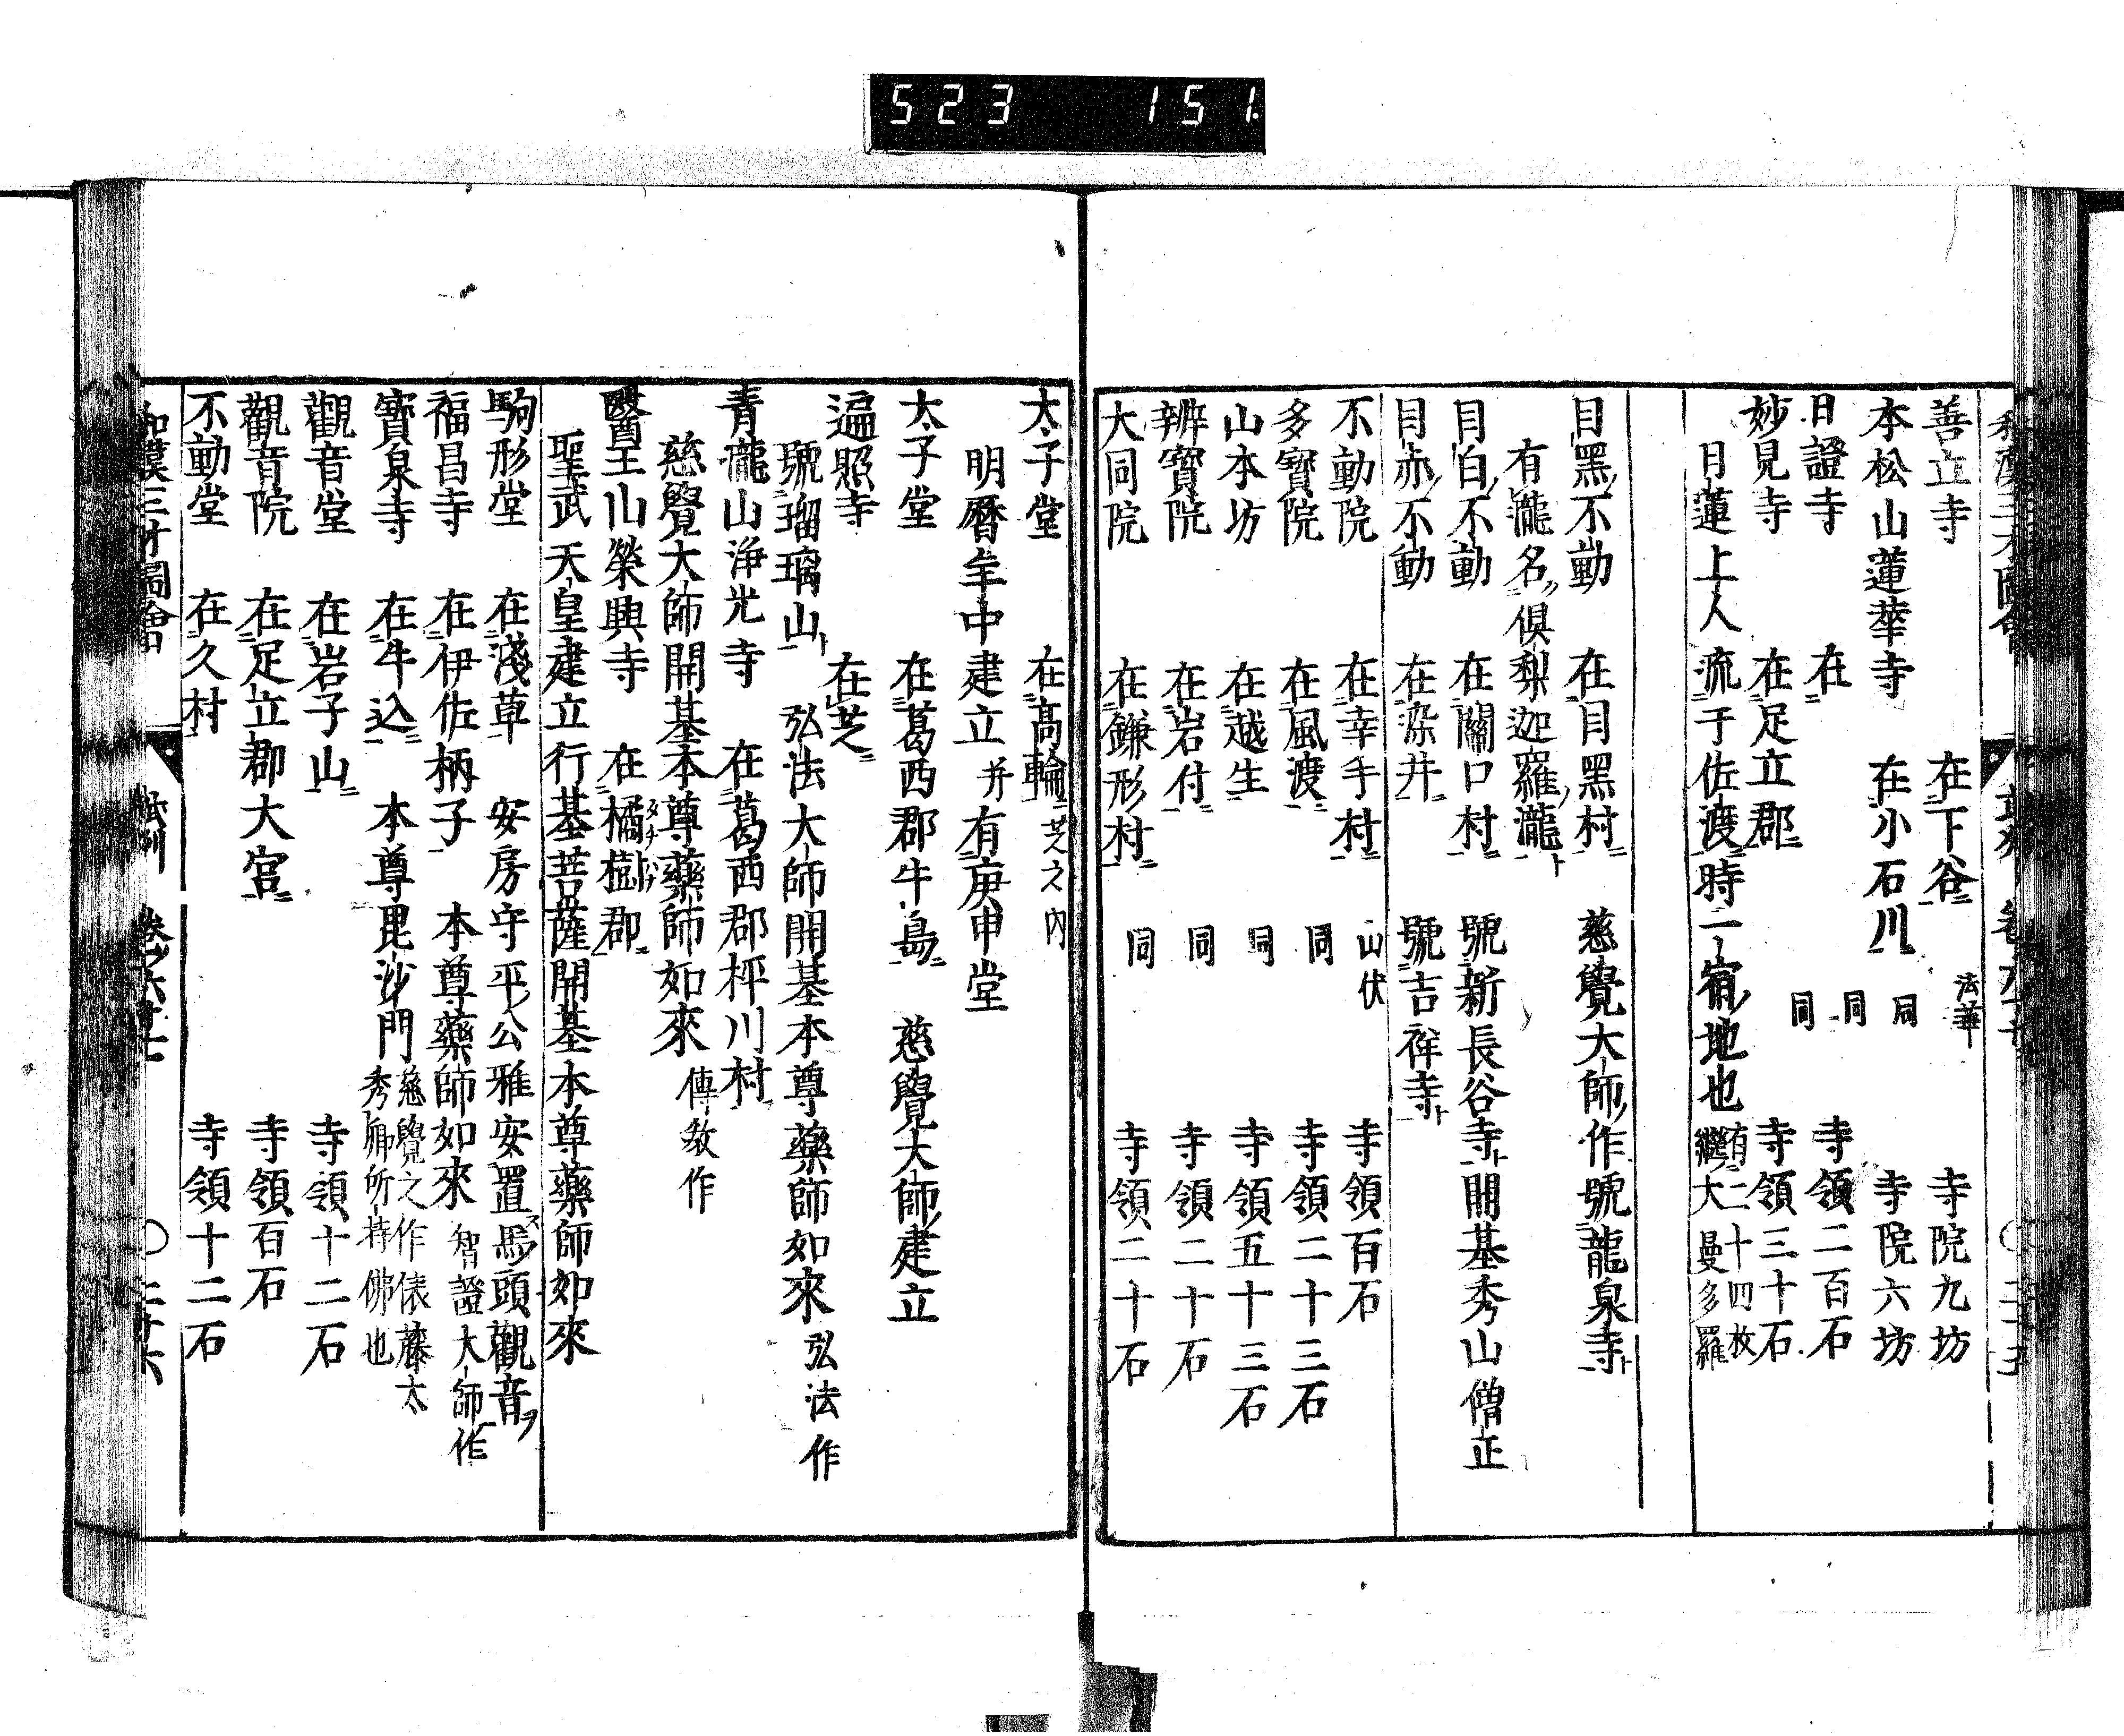 523 151
善立寺 在下谷 法華 寺院九坊
本松山蓮華寺 在小石川 同 寺院六坊
日證寺 在 同 寺領二百石
妙見寺 在足立郡 同 寺領三十石
日蓮上人流于佐渡時一宿地也 有二十四枚繼大曼多羅
目黑不動 在目黑村 慈覺大師作號龍泉寺
有瀧名俱梨迦羅瀧
目白不動 在關口村 號新長谷寺開基秀山僧正
目赤不動 在染井 號吉祥寺
不動院 在幸手村 山伏 寺領百石
多寶院 在風渡 同 寺領二十三石
山本坊 在越生 同 寺領五十三石
辨寶院 在岩付 同 寺領二十石
大同院 在鎌形村 同 寺領二十石
太子堂 在高輪 芝之內
明曆年中建立并有庚申堂
太子堂 在葛西郡牛島 慈覺大師建立
遍照寺 在芝
號瑠璃山 弘法大師開基本尊藥師如來 弘法作
青瀧山淨光寺 在葛西郡枰川村
慈覺大師開基本尊藥師如來 傳教作
醫王山榮興寺 在橘樹郡
聖武天皇建立行基菩薩開基本尊藥師如來
駒形堂 在淺草 安房守平公雅安置馬頭觀音ヲ
福昌寺 在伊佐柄子 本尊藥師如來 智證大師作
寶泉寺 在牛込 本尊毘沙門 慈覺之作俵藤太秀鄉所持佛也
觀音堂 在岩子山 寺領十二石
觀音院 在足立郡大宮 寺領百石
不動堂 在久村 寺領十二石
和漢三才圖會